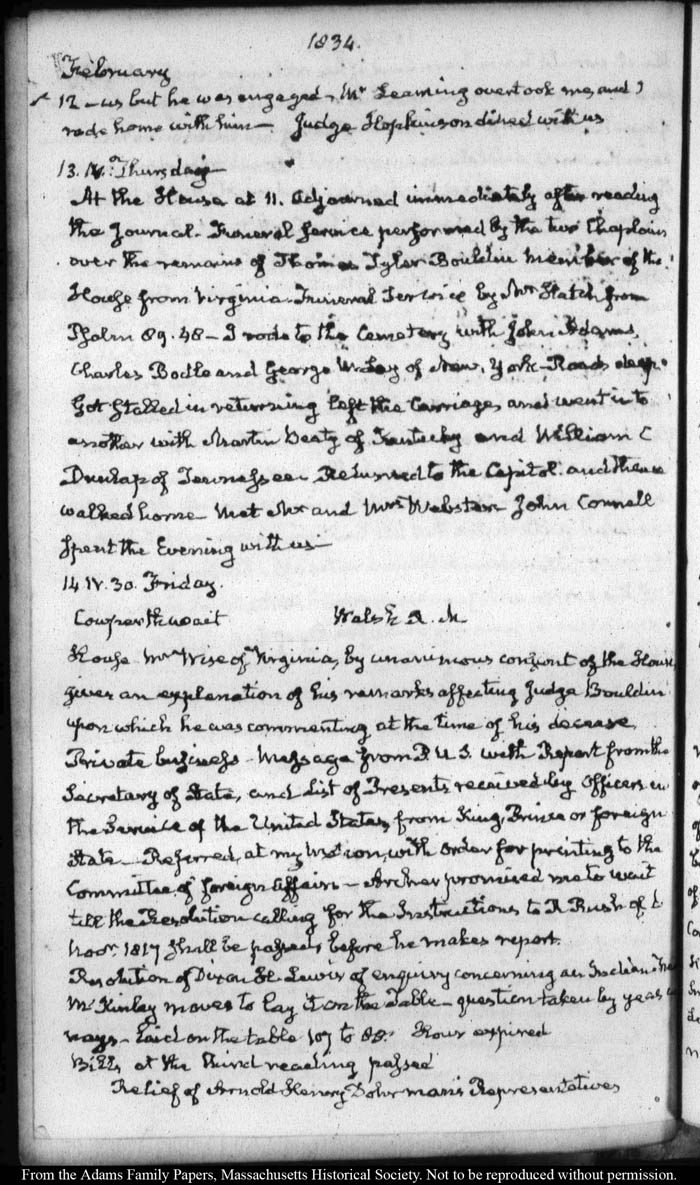 1834.
February
12 – us but he was engaged. Mr Leaming overtook me, and I
rode home with him — Judge Hopkinson dined with us
13. IV. Thursday
At the House at 11. Adjourned immediately after reading
the Journal. Funeral service performed by the two Chaplains
over the remains of Thomas Tyler Bouldin Member of the
House from Virginia. Funeral Service by Mr Hatch from
Psalm 89. 48 – I rode to the Cemetery with John Adams,
Charles Bodle and George W Lay of New York – Roads deep.
Got stalled in returning left the Carriage, and went into
another with Martin Beaty of Kentucky and William C
Dunlap of Tennessee. Returned to the Capitol. and thence
walked home. Met Mr and Mrs Webster. John Connell
spent the Evening with us –
14 IV. 30. Friday.
Cowperthwait Walsh R. M
House Mr Wise of Virginia, by unanimous consent of the House,
gives an explanation of his remarks affecting Judge Bouldin
upon which he was commenting at the time of his decease.
Private business. Message from P. U.S. with Report from the
Secretary of State, and list of Presents received by Officers in
the Service of the United States, from King, Prince or foreign
State – Referred, at my motion, with order for printing to the
Committee of foreign Affairs – Archer promised me to wait
till the Resolution calling for the Instructions to R Rush of
Novr 1817 shall be passed, before he makes report.
Resolution of Dixon H. Lewis of enquiry concerning an Indian
McKinley moves to lay it on the Table – question taken by yeas
nays – laid on the table 107 to 88. Hour expired
Bills at the third reading passed
Relief of Arnold Henry Dohrman's Representatives
From the Adams Family Papers, Massachusetts Historical Society. Not to be reproduced without permission.